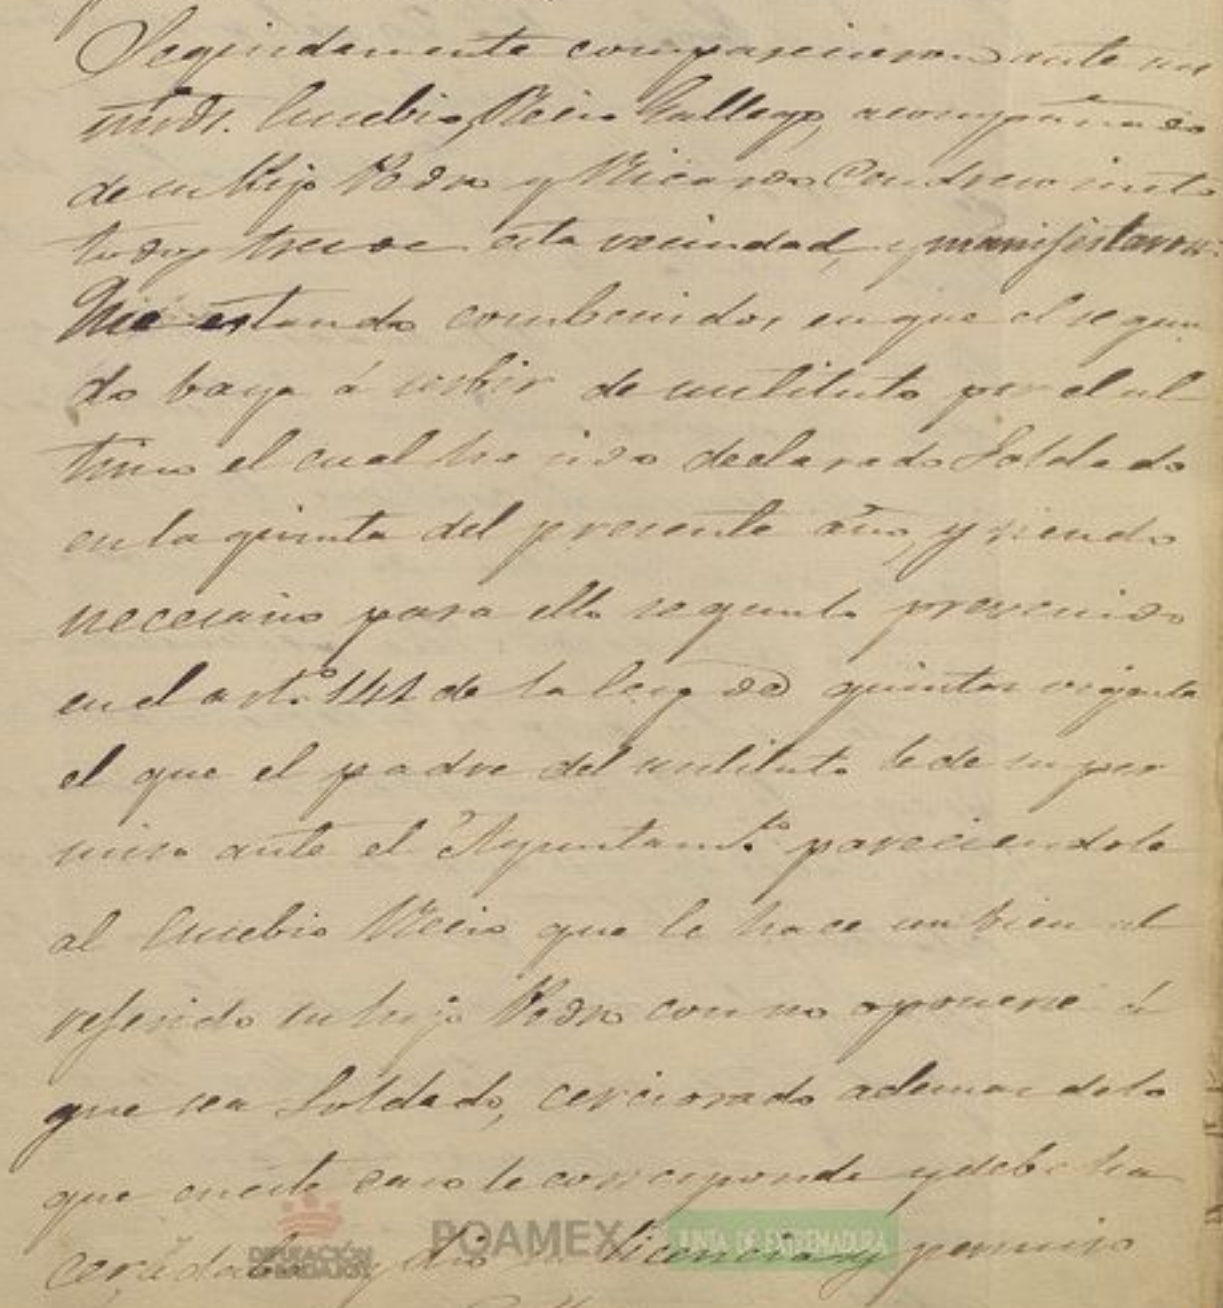 Seguidamente comparecieron ante su
mrds. Eusebio Recio Gallego, acompañado
de su hijo Pedro y Ricardo
todos tres de esta vecindad, y manifestaron:
Que estando combenidos, en que el segun
do baya á serbir de sustituto por el ul
timo el cual ha sido declarado Soldado
en la quinta del presente año, y siendo
necesario para ello segun lo prevenido
en el art.º 141 de la ley de quintas vigente
el que el padre del sustituto le de su per
miso ante el Ayuntamto pareciendole
al Eusebio Recio que le hace un bien al
referido su hijo Pedro con no oponerse á
que sea Soldado, cerciorado ademas de lo
que en este caso le corresponde y debe ha
cer, y dió licencia y permiso
DIPUTACIÓN DE BADAJOZ POAMEX JUNTA DE EXTREMADURA